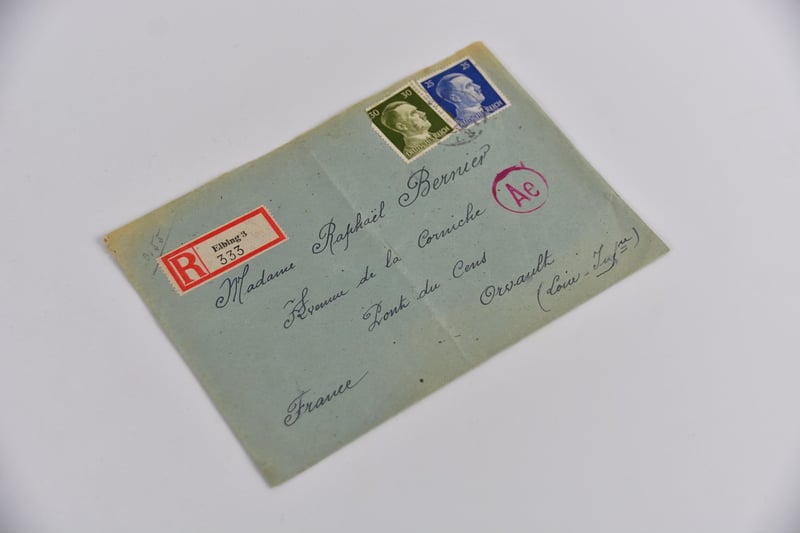 30 30
25 25
DEUTSCHES REICH
R
Elbing 3
333
Ae
Madame Raphaël Bernier
Avenue de la Corniche
Pont du Cens
Orvault
(Loire-Infre)
France